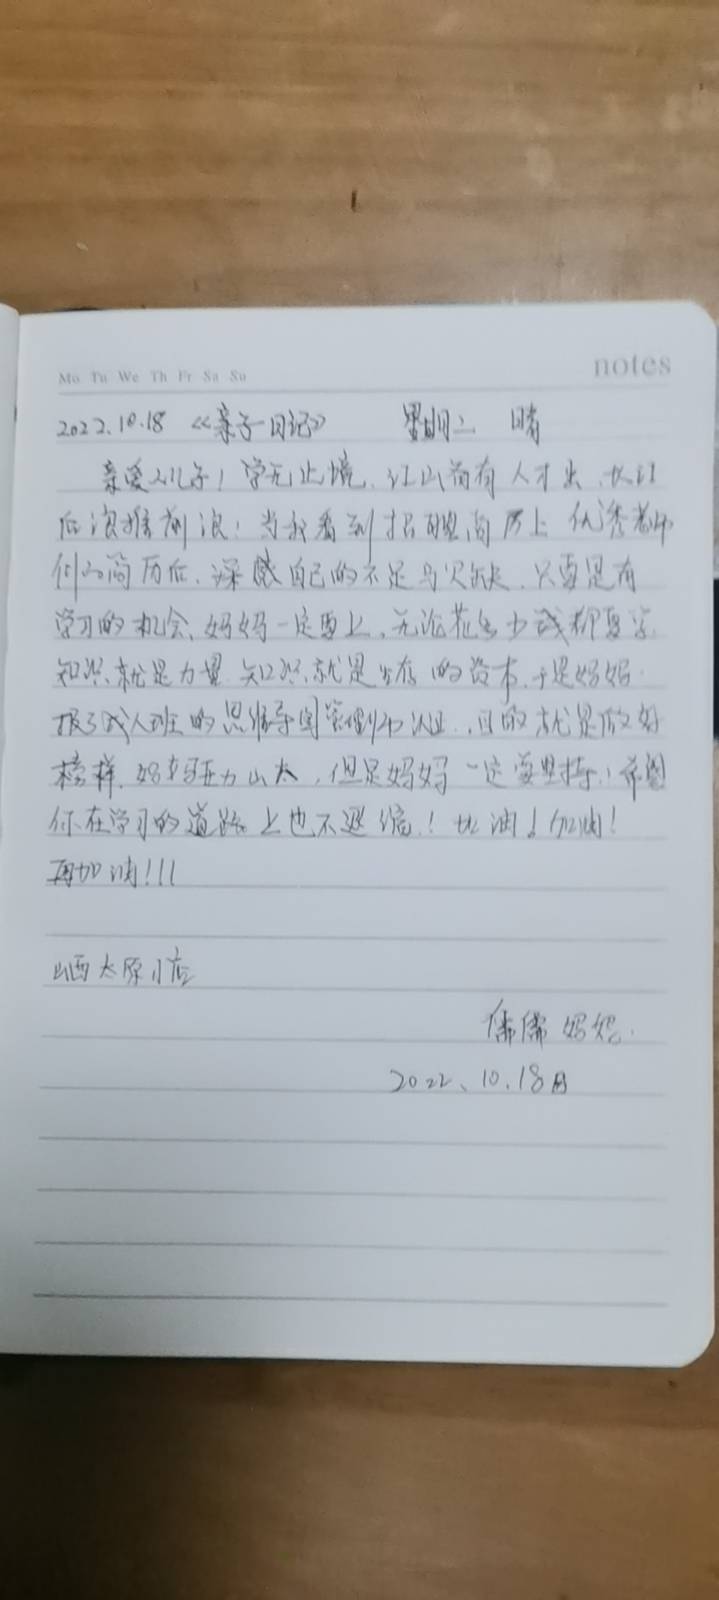 notes
Mo Tu We Th Fr Sa Su
2022.10.18 《亲子日记》 星期二 晴
亲爱的儿子！学无止境，江山尚有人才出，长江
后浪推前浪！当我看到招聘简历上优秀老师
们的简历后，深感自己的不足与欠缺，只要是有
学习的机会，妈妈一定要上，无论花多少钱都要学，
知识就是力量，知识就是生存的资本，于是妈妈
报了成人班的思维导图管理师认证，目的就是做好
榜样，妈妈压力山大，但是妈妈一定要坚持！希望
你在学习的道路上也不退缩！加油！加油！
再加油!!!
山西太原小店
儒儒妈妈
2022、10、18日